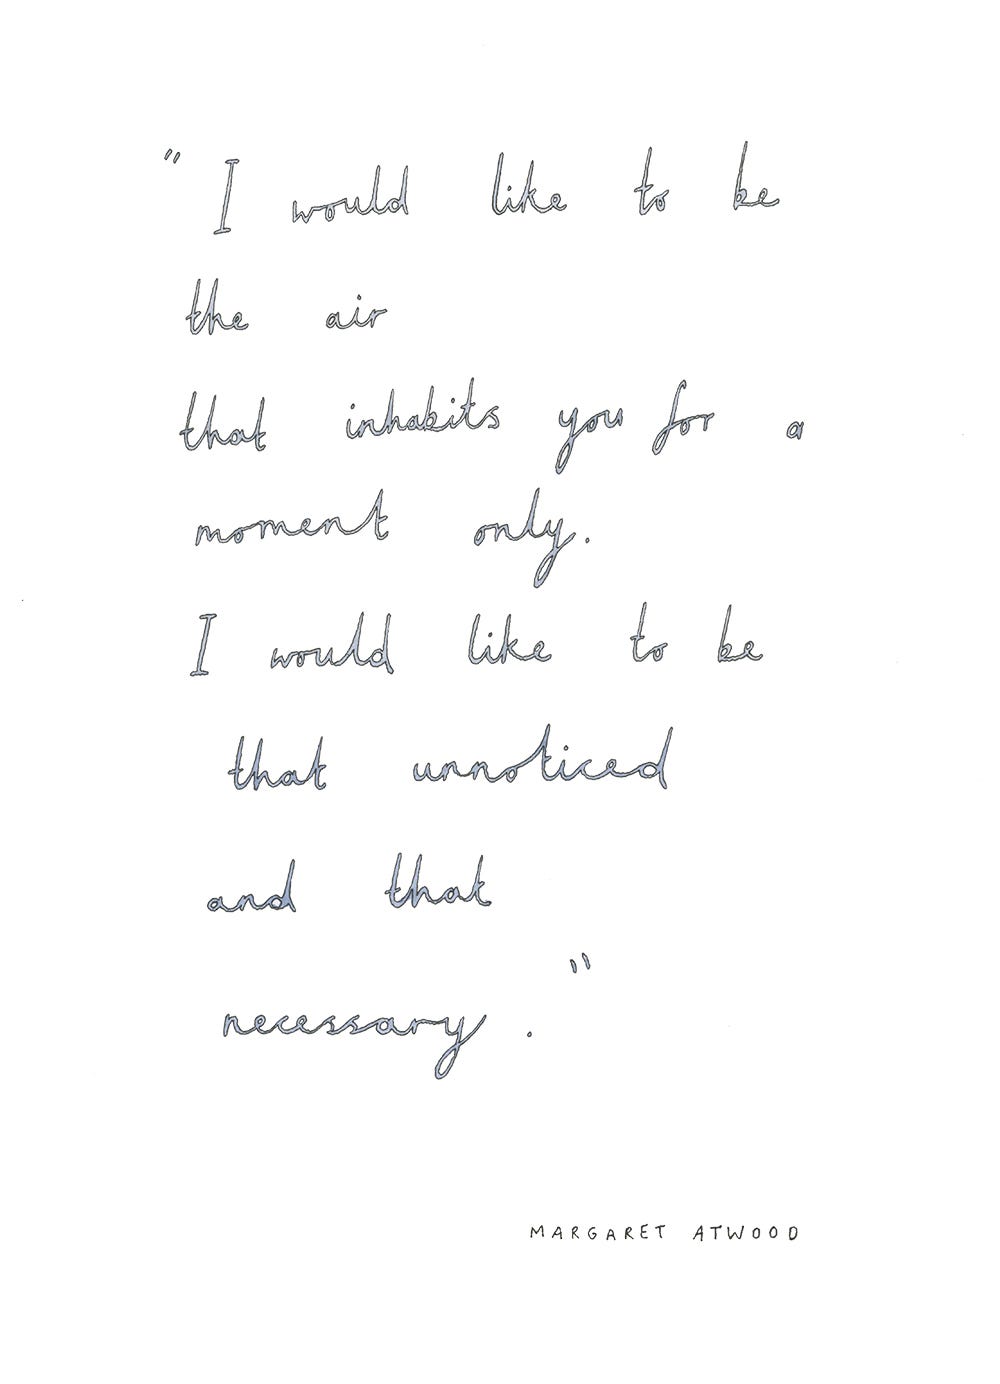 "I would like to be
the air
that inhabits you for a
moment only.
I would like to be
that unnoticed
and that
necessary."
MARGARET ATWOOD